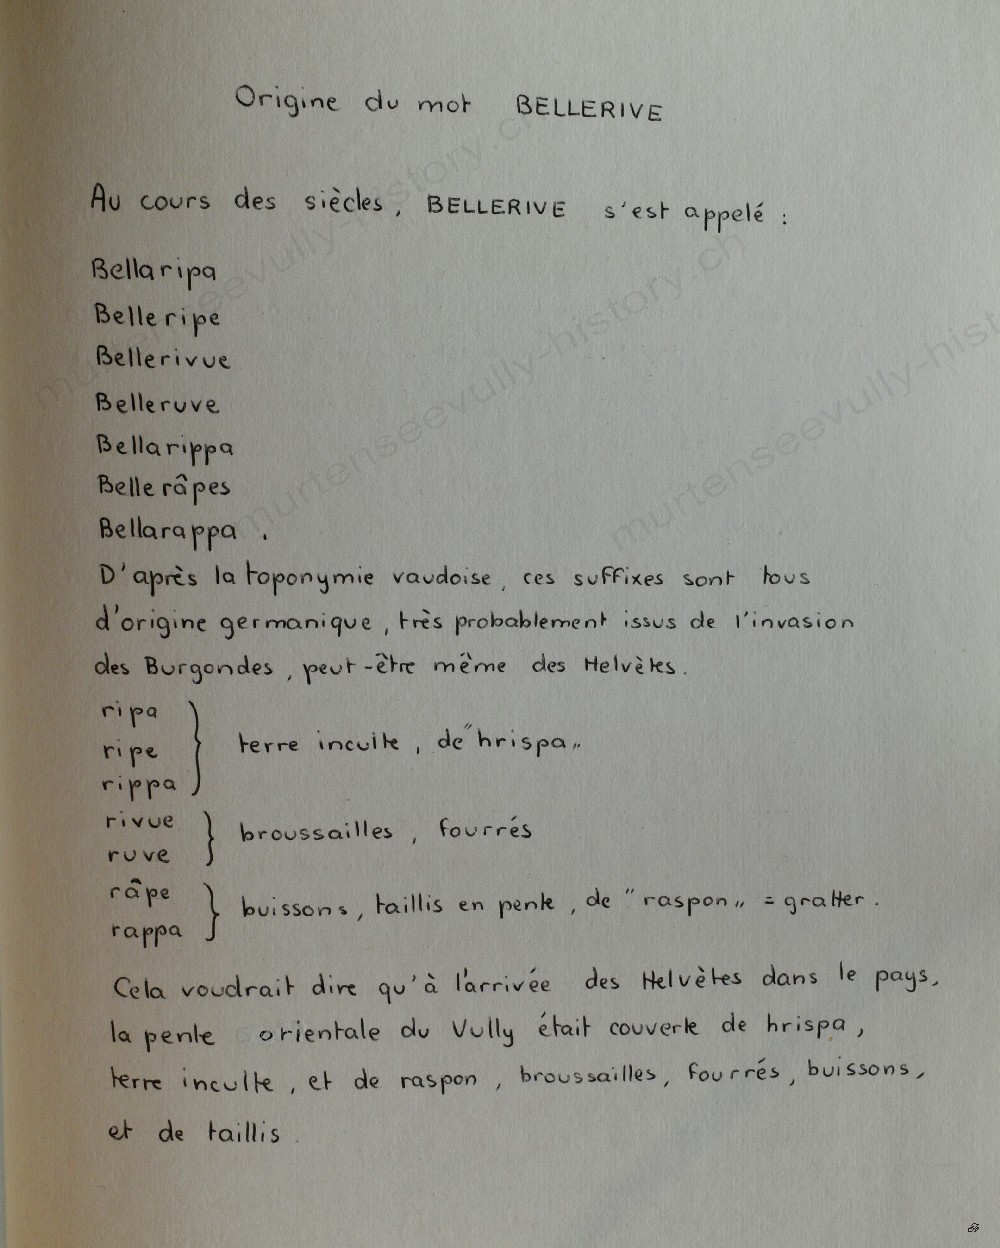 Origine du mot BELLERIVE
Au cours des siècles, BELLERIVE s'est appelé :
Bellaripa
Belleripe
Bellerivue
Belleruve
Bellarippa
Belle râpes
Bellarappa.
D'après la toponymie vaudoise, ces suffixes sont tous
d'origine germanique, très probablement issus de l'invasion
des Burgondes, peut-être même des Helvètes.
ripa
ripe
rippa
terre inculte, de "hrispa"
rivue
ruve
broussailles, fourrés
râpe
rappa
buissons, taillis en pente, de "raspon" = gratter.
Cela voudrait dire qu'à l'arrivée des Helvètes dans le pays,
la pente orientale du Vully était couverte de hrispa,
terre inculte, et de raspon, broussailles, fourrés, buissons,
et de taillis.
murtenseevully-history.ch
murtenseevully-history.ch
murtenseevully-hist